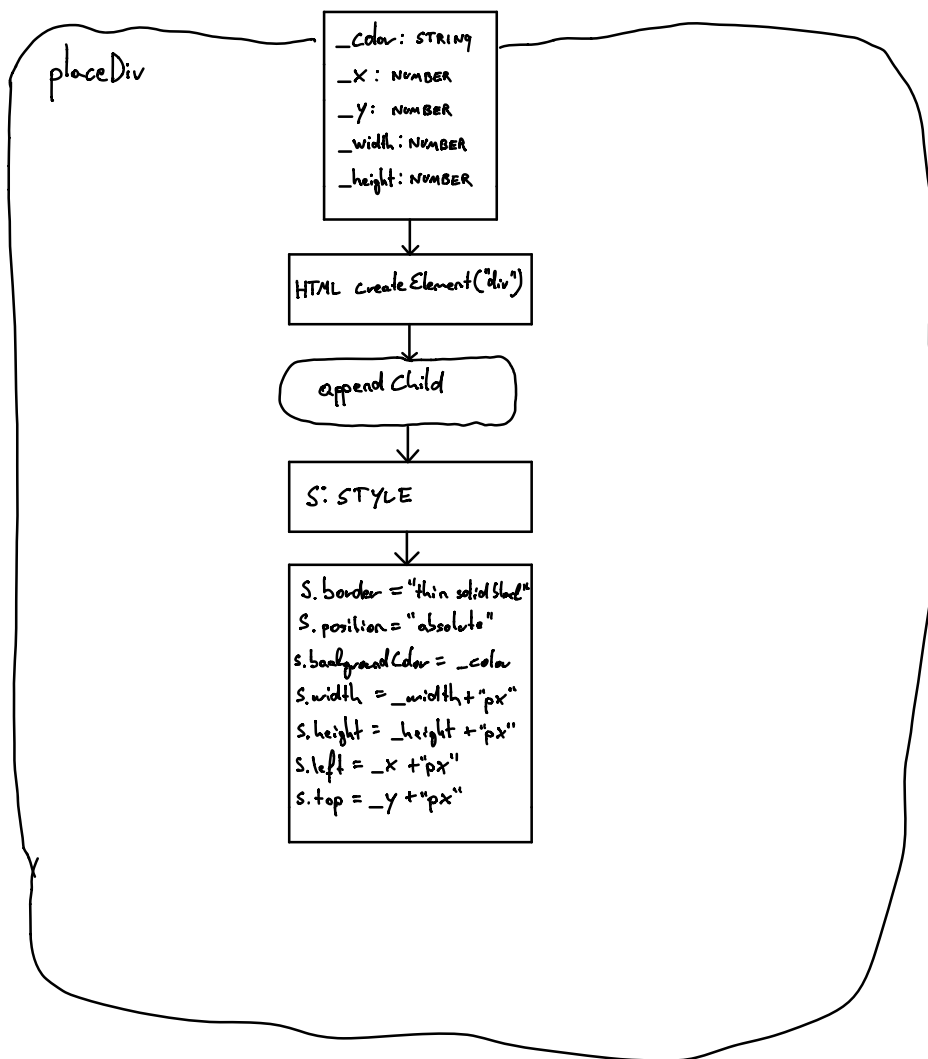 placeDiv
_color: STRING
_x: NUMBER
_y: NUMBER
_width: NUMBER
_height: NUMBER
HTML createElement("div")
appendChild
S: STYLE
S.border = "thin solid black"
S.position = "absolute"
s.backgroundColor = _color
s.width = _width + "px"
s.height = _height + "px"
s.left = _x + "px"
s.top = _y + "px"